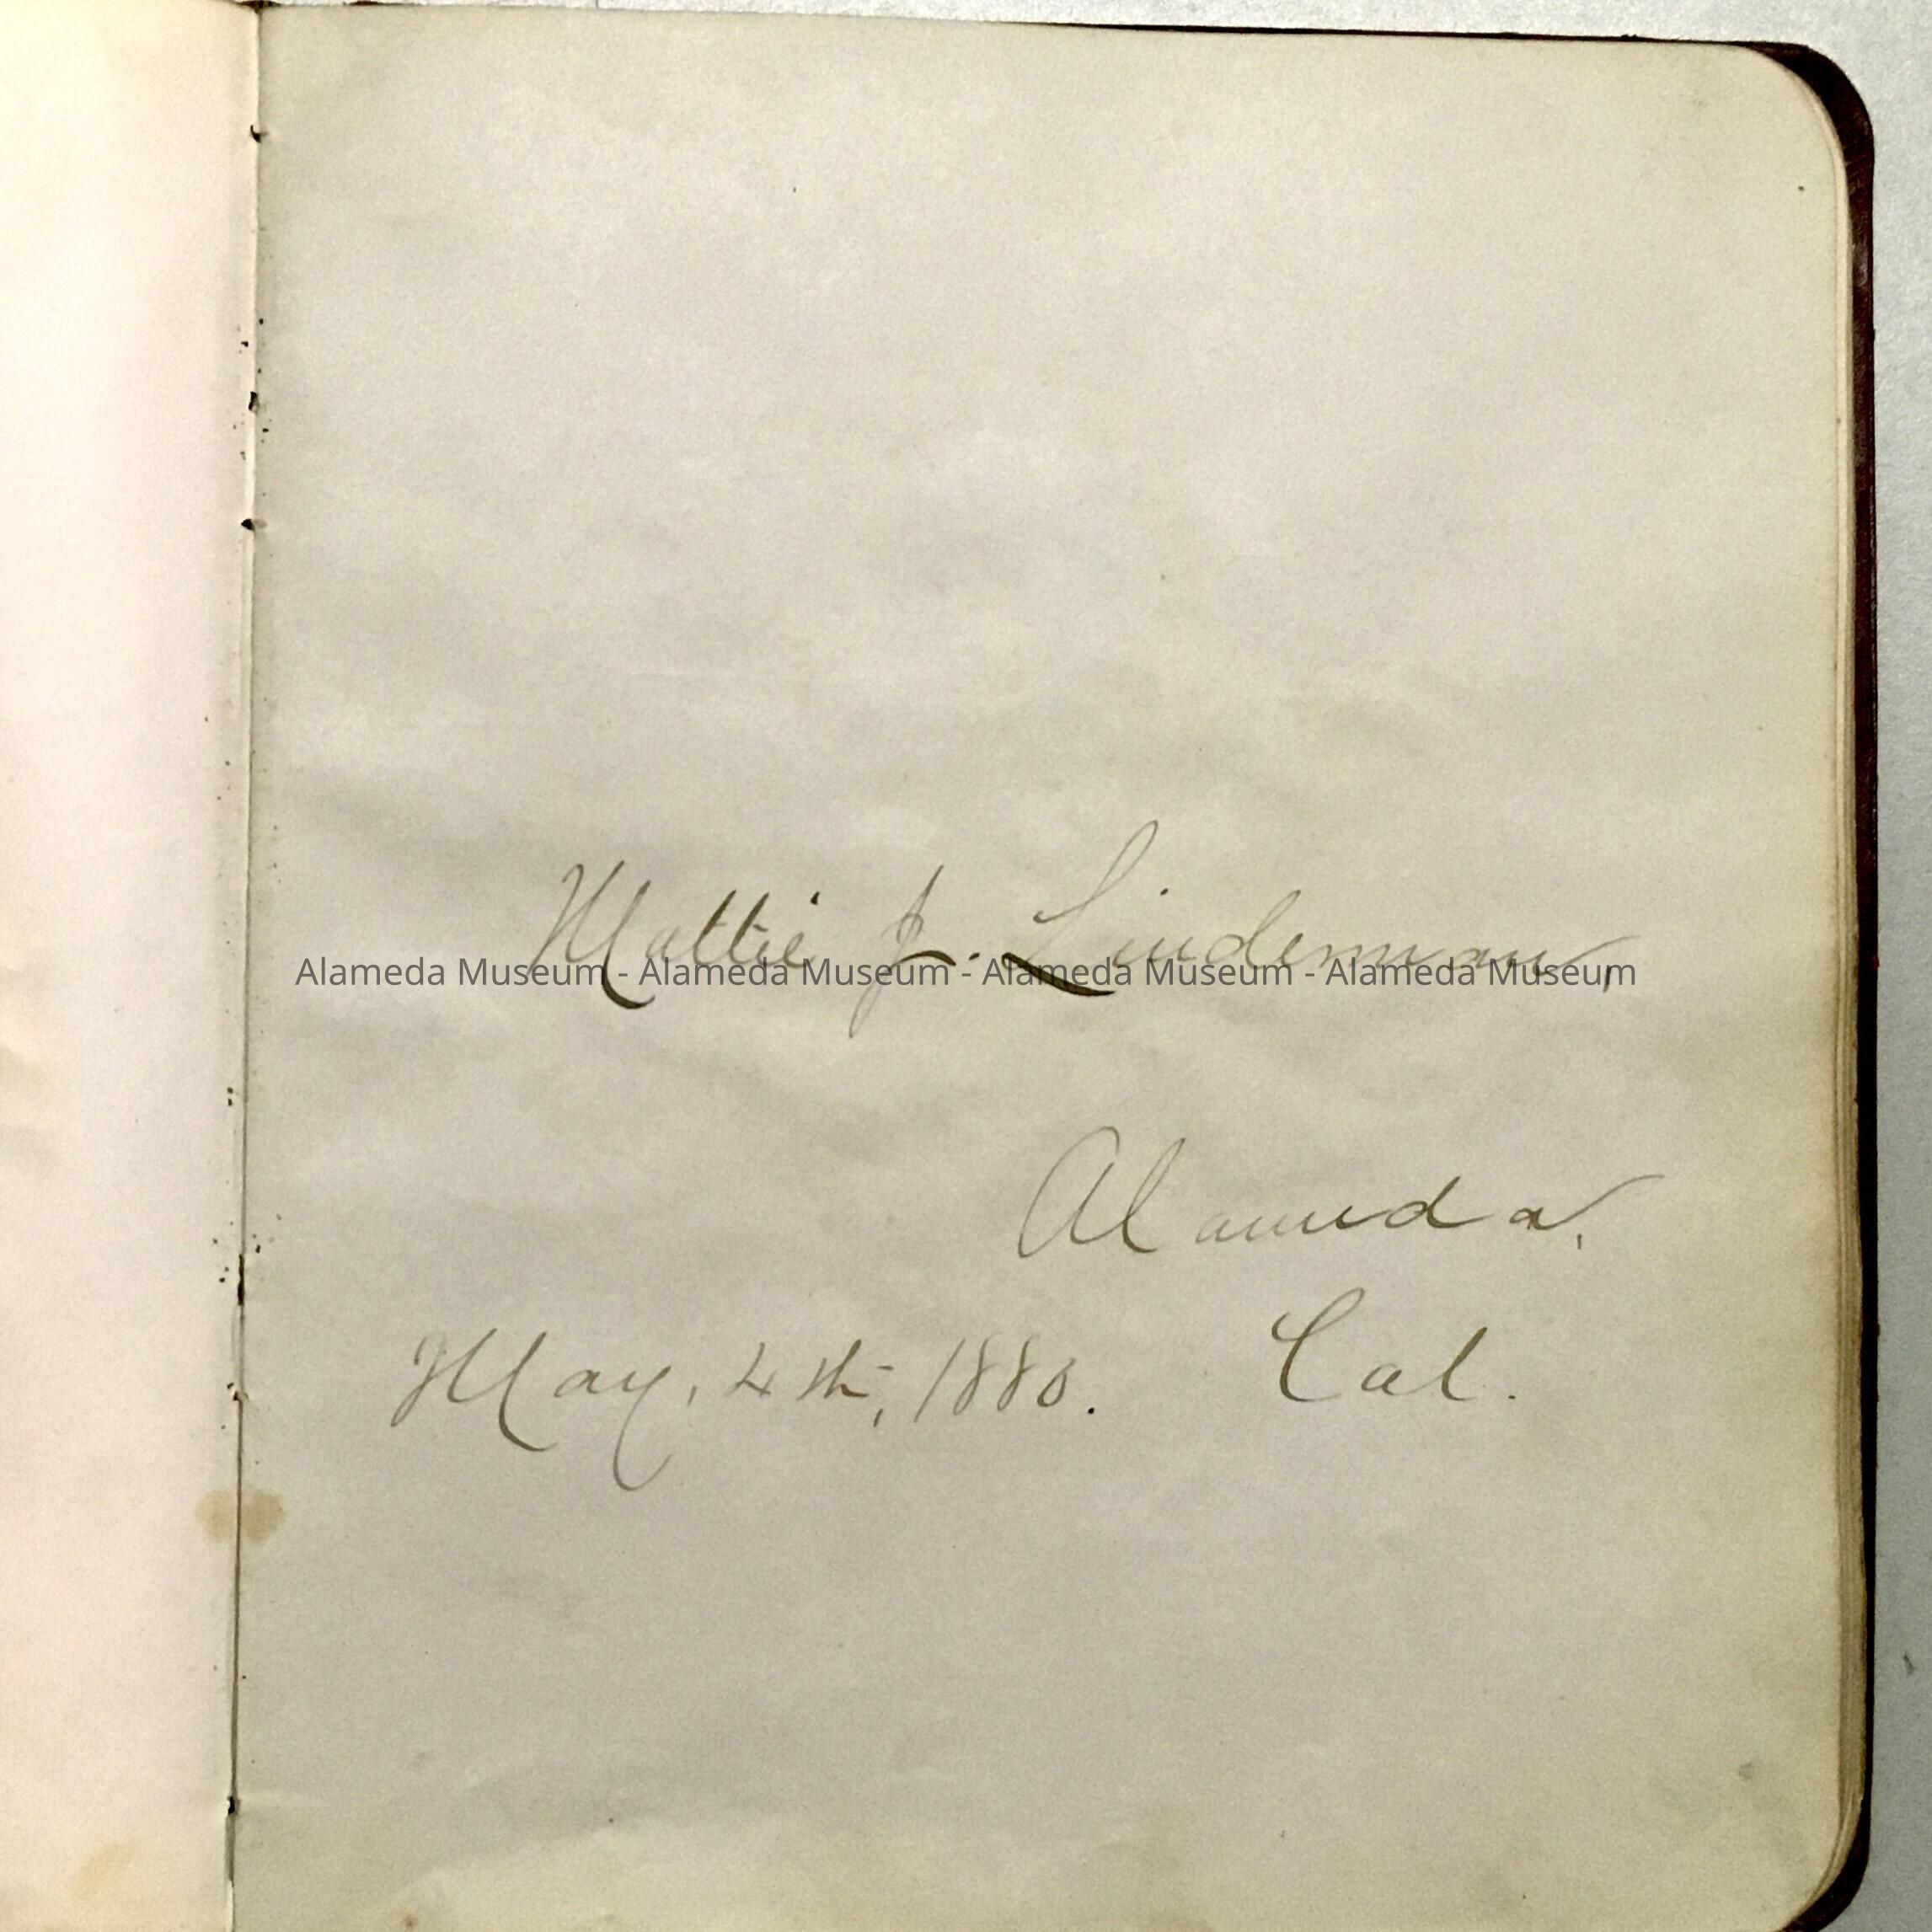 Mattie J. Lindeman,
Alameda Museum - Alameda Museum - Alameda Museum - Alameda Museum
Alameda,
May, 4th, 1880. Cal.